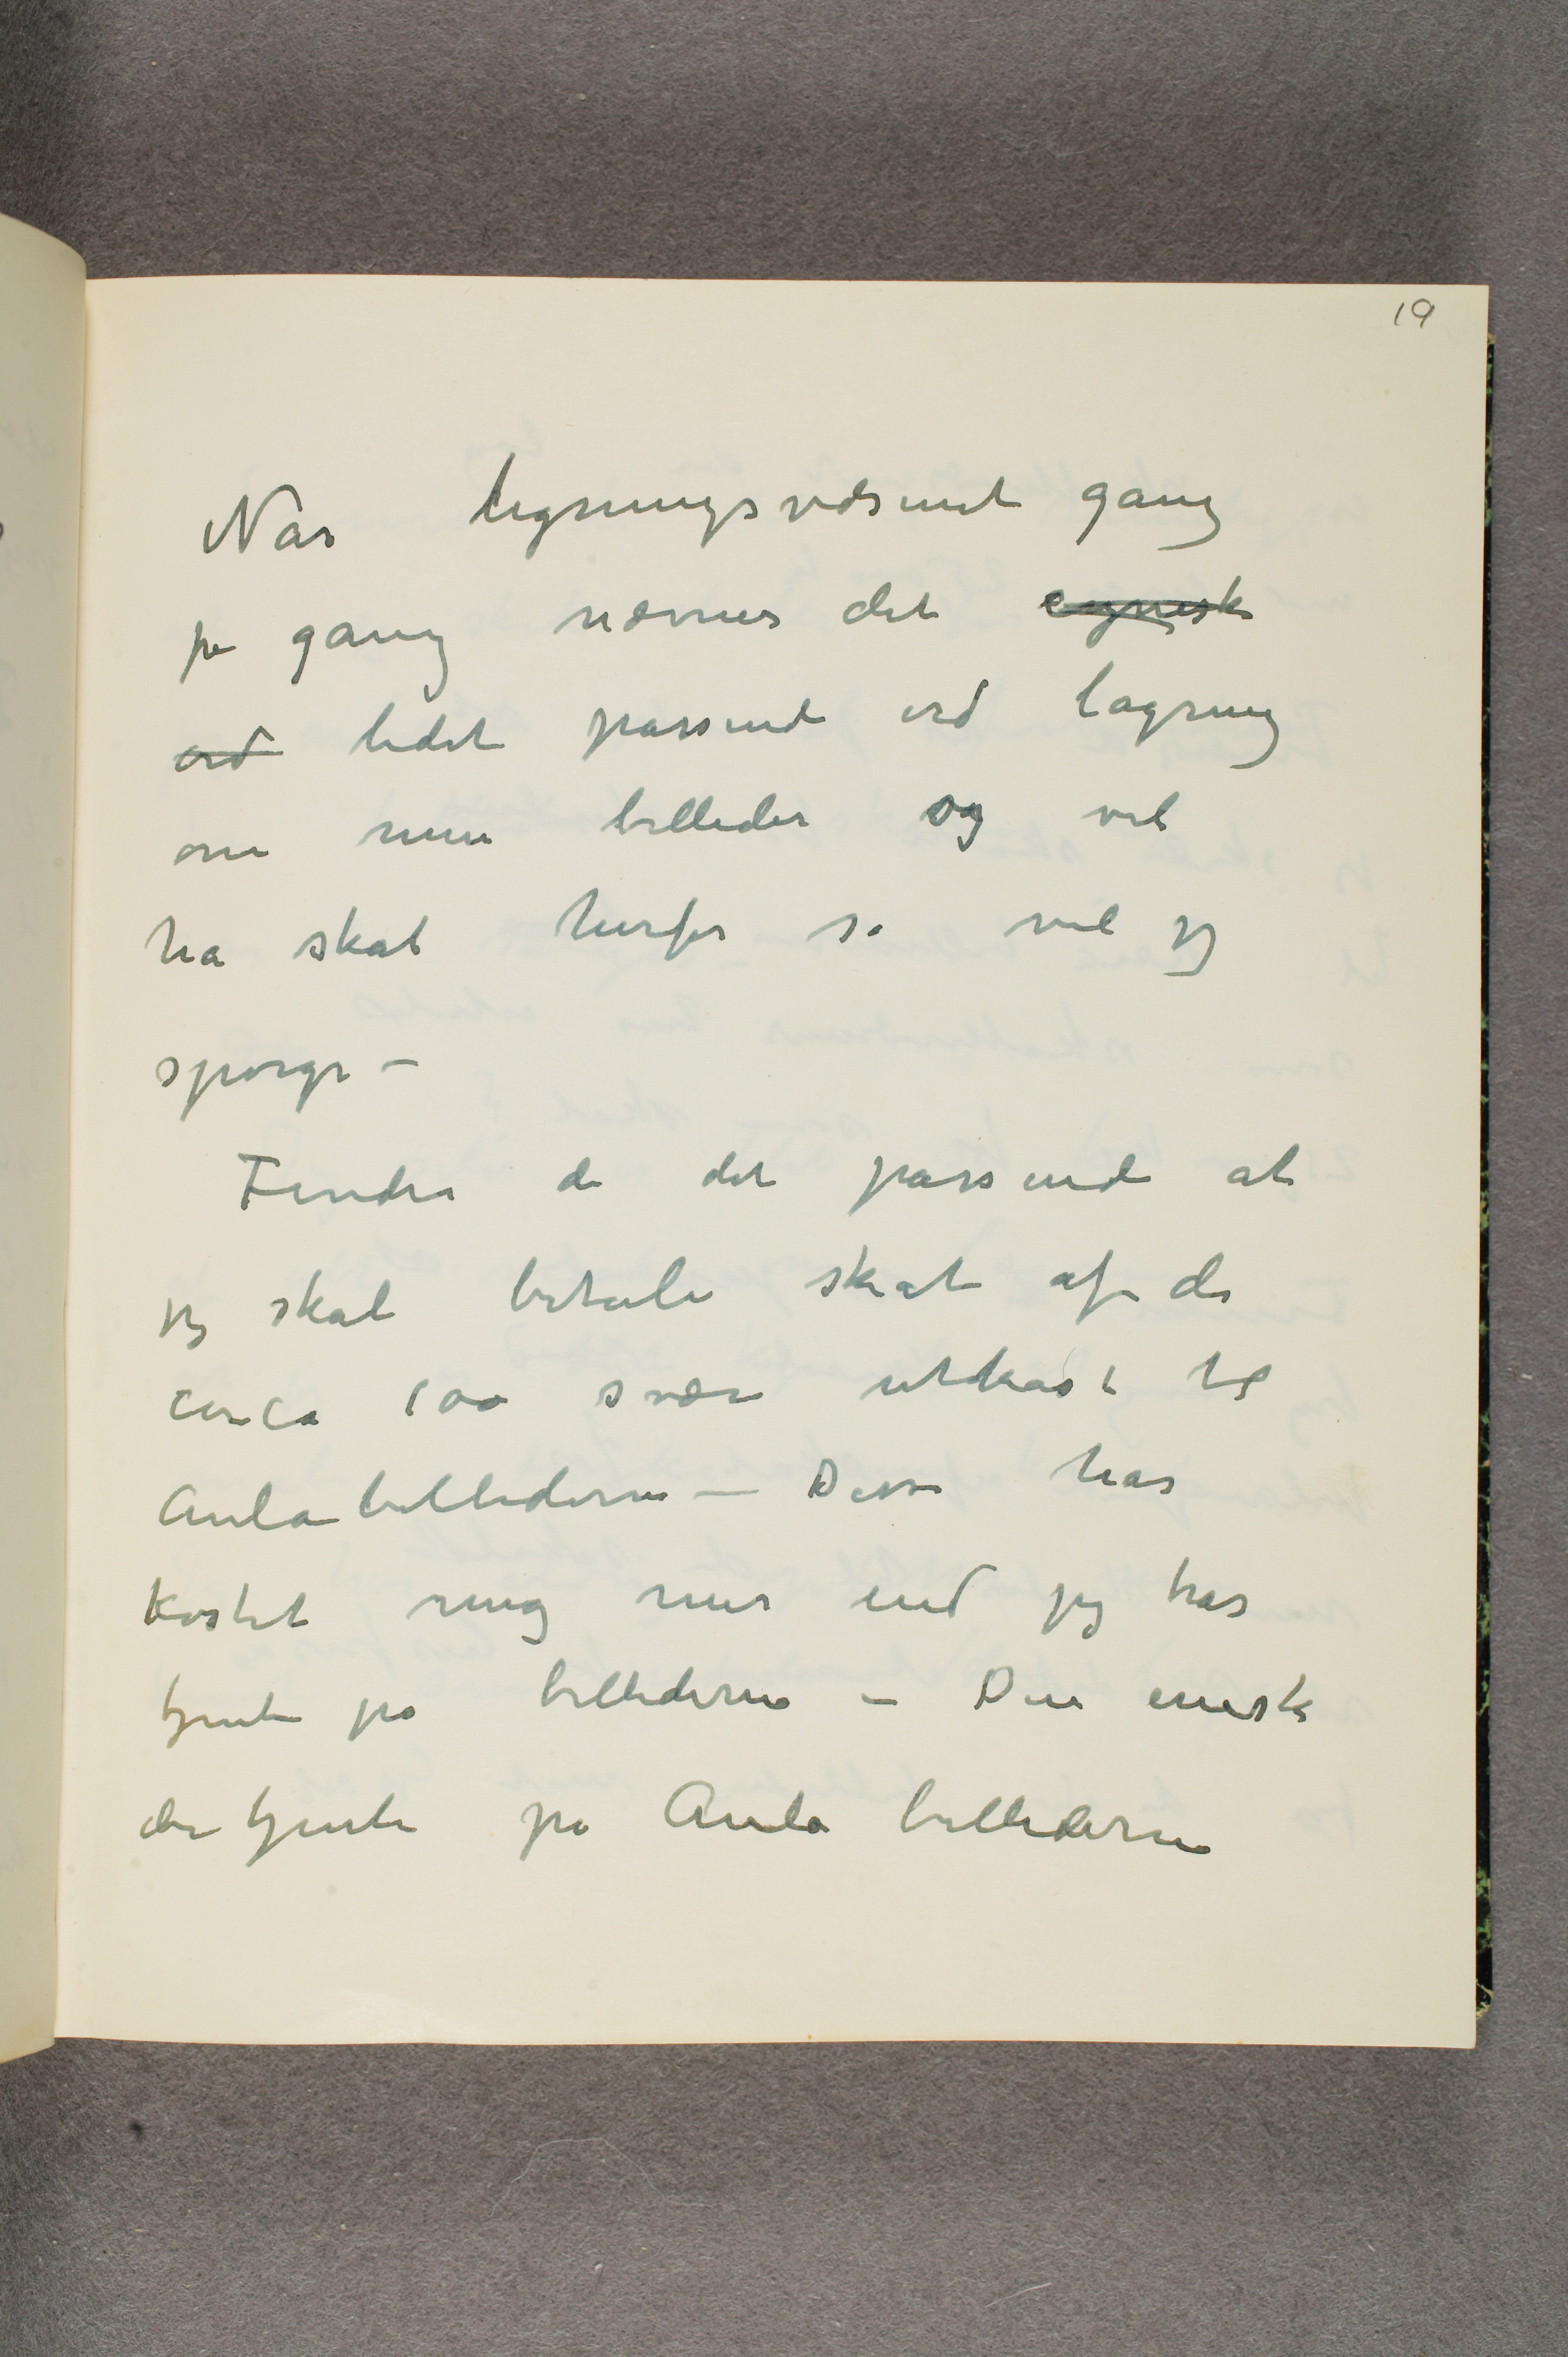 19
Når ligningsvæsenet gang
på gang nævner det cyniske
ord lidet passende ord lagring
om mine billeder og vil
ha skat herfor så vil jeg
spørge –
Finder de det passende at
jeg skal betale skat af de
circa 100 svære utkast til
Aulabillederne – Disse har
kostet mig mer end jeg har
tjent på billederne – Den eneste
der tjente på Aula billederne